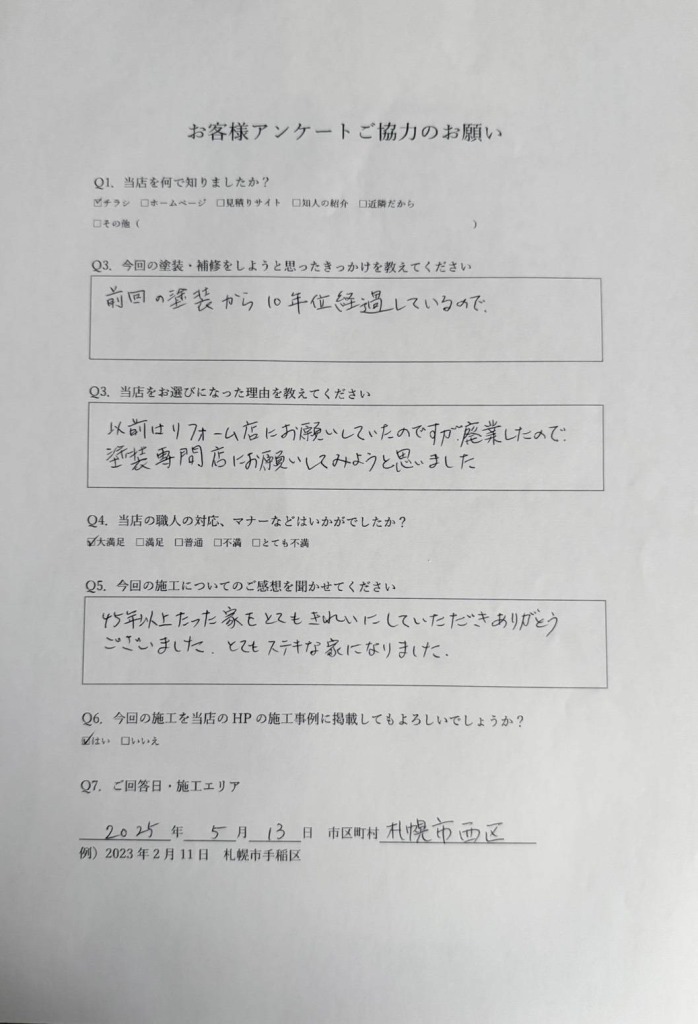 お客様アンケートご協力のお願い
Q1. 当店を何で知りましたか？
☑チラシ □ホームページ □見積りサイト □知人の紹介 □近隣だから
□その他（ ）
Q3. 今回の塗装・補修をしようと思ったきっかけを教えてください
前回の塗装から10年位経過しているので、
Q3. 当店をお選びになった理由を教えてください
以前はリフォーム店にお願いしていたのですが、廃業したので、
塗装専門店にお願いしてみようと思いました
Q4. 当店の職人の対応、マナーなどはいかがでしたか？
☑大満足 □満足 □普通 □不満 □とても不満
Q5. 今回の施工についてのご感想を聞かせてください
45年以上たった家をとてもきれいにしていただきありがとう
ございました. とてもステキな家になりました.
Q6. 今回の施工を当店の HP の施工事例に掲載してもよろしいでしょうか？
☑はい □いいえ
Q7. ご回答日・施工エリア
2025 年 5 月 13 日 市区町村 札幌市西区
例）2023 年 2 月 11 日 札幌市手稲区